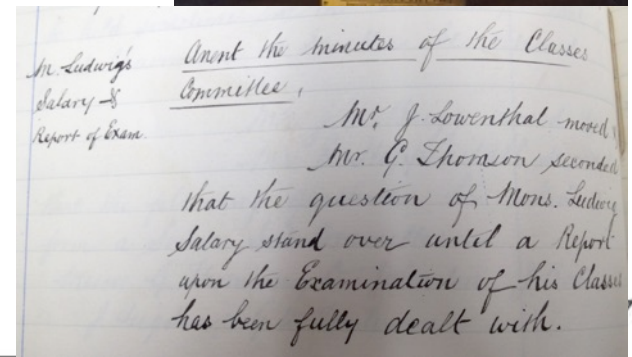 M. Ludwig's
Salary &
Report of Exam.
Anent the minutes of the Classes
Committee.
Mr. J. Lowenthal moved
Mr. G. Thomson seconded
that the question of Mons. Ludwig
Salary stand over until a Report
upon the Examination of his Classes
has been fully dealt with.